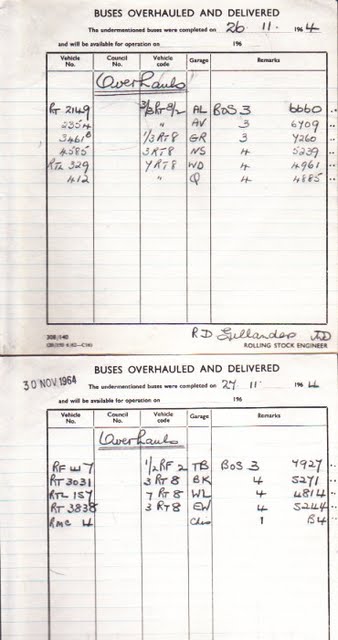 BUSES OVERHAULED AND DELIVERED
The undermentioned buses were completed on 26 11. 1964
and will be available for operation on 196
Vehicle No. Council No. Vehicle code Garage Remarks
Overhauls
RT 2149 3/2RT8/2 AL BOS 3 6660 ..
2354 " AV 3 6709 ..
3461 1/3 RT8 GR 3 7260 ..
4585 3RT8 NS 4 5239 ..
RTL 329 7RT8 WD 4 4961 ..
412 " Q 4 4885 ..
308/140
ROLLING STOCK ENGINEER
BUSES OVERHAULED AND DELIVERED
30 NOV 1964
The undermentioned buses were completed on 27 11. 1964
and will be available for operation on 196
Vehicle No. Council No. Vehicle code Garage Remarks
Overhauls
RFW 7 1/2 RF 2 TB BOS 3 7927 ..
RT 3031 3 RT 8 BK 4 5271 ..
RTL 157 7 RT 8 WL 4 4814 ..
RT 3838 3 RT 8 EW 4 5244 ..
RMC 4 Chis 1 B4 ..